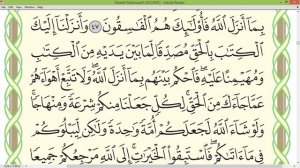 Mushaf Madinah.pdf (SECURED) - Adobe Reader
بِمَآ أَنزَلَ ٱللَّهُ فَأُوْلَٰٓئِكَ هُمُ ٱلْفَٰسِقُونَ ٤٧ وَأَنزَلْنَآ إِلَيْكَ
ٱلْكِتَٰبَ بِٱلْحَقِّ مُصَدِّقًا لِّمَا بَيْنَ يَدَيْهِ مِنَ ٱلْكِتَٰبِ
وَمُهَيْمِنًا عَلَيْهِۖ فَٱحْكُم بَيْنَهُم بِمَآ أَنزَلَ ٱللَّهُۖ وَلَا تَتَّبِعْ أَهْوَآءَهُمْ
عَمَّا جَآءَكَ مِنَ ٱلْحَقِّۚ لِكُلٍّ جَعَلْنَا مِنكُمْ شِرْعَةً وَمِنْهَاجًاۚ
وَلَوْ شَآءَ ٱللَّهُ لَجَعَلَكُمْ أُمَّةً وَٰحِدَةً وَلَٰكِن لِّيَبْلُوَكُمْ
فِي مَآ ءَاتَىٰكُمْۖ فَٱسْتَبِقُواْ ٱلْخَيْرَٰتِۚ إِلَى ٱللَّهِ مَرْجِعُكُمْ جَمِيعًا